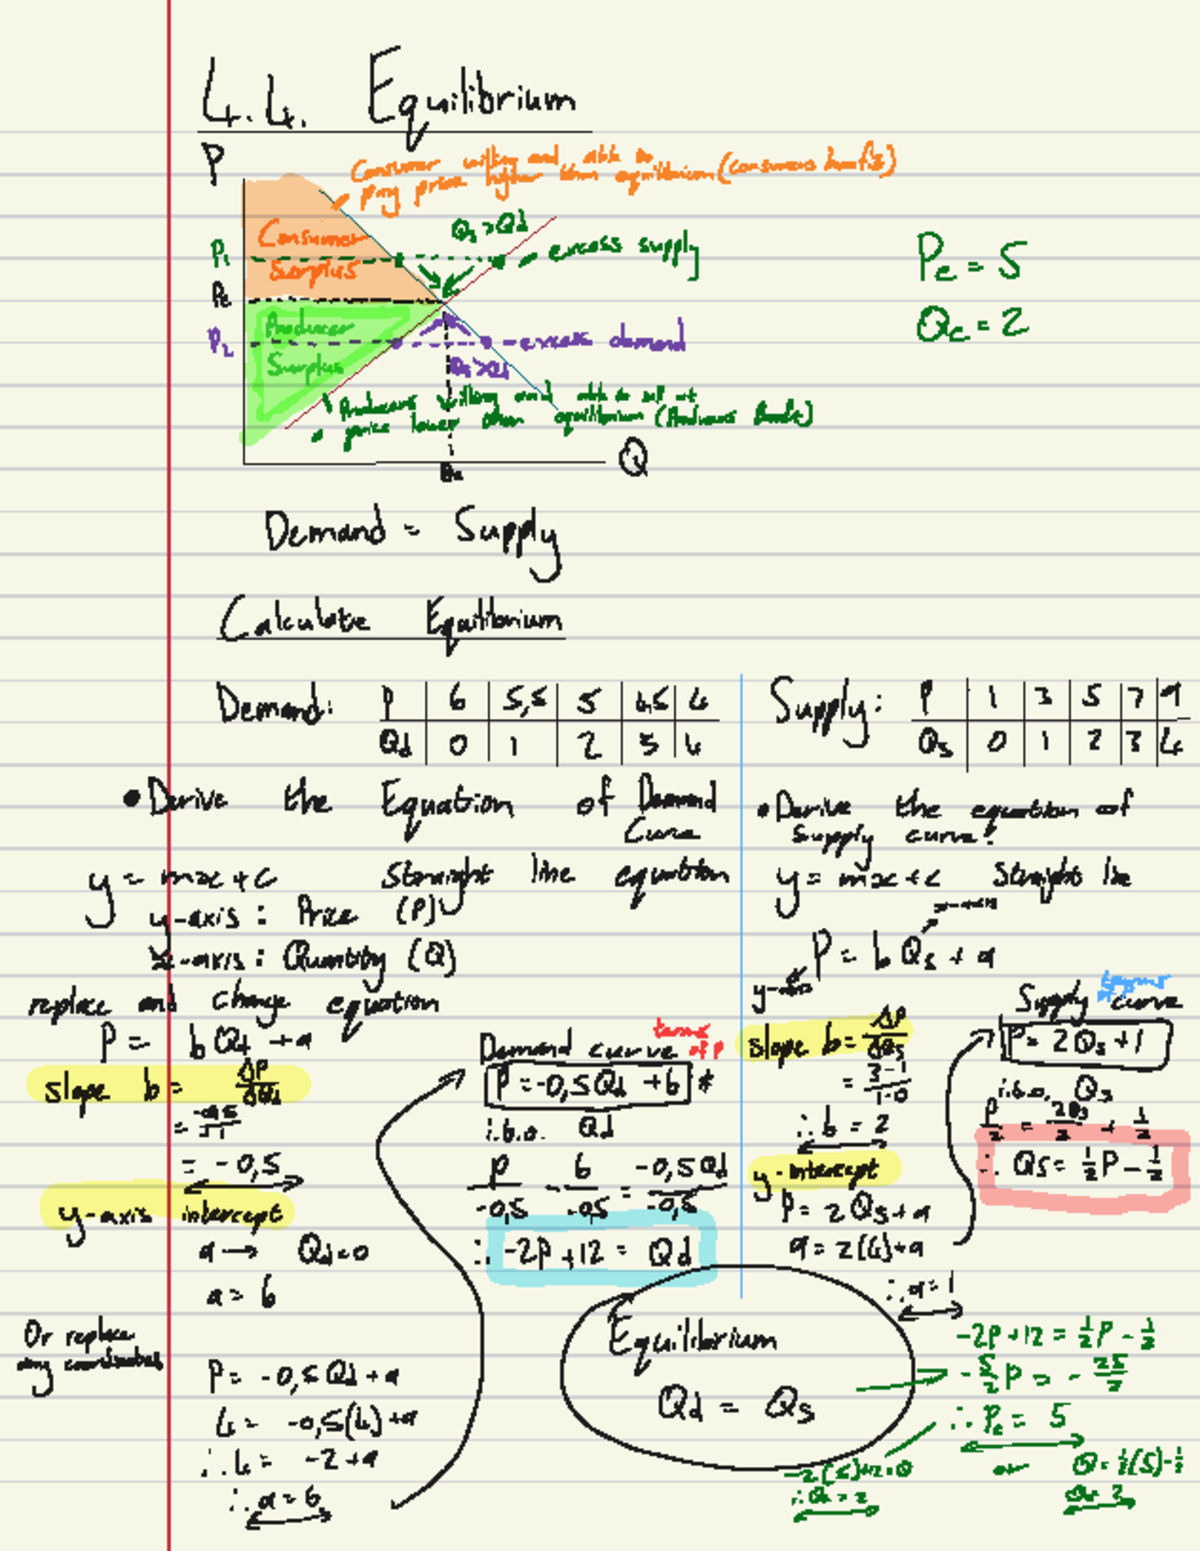 4.4. Equilibrium
P
Consumer willing and able to
pay price higher than equilibrium (consumers benefit)
Consumer
Surplus
P₁
Qs > Qd
excess supply
Pe
Producer
Surplus
P₂
excess demand
Producers willing and able to sell at
price lower than equilibrium (Producers Benefit)
Qe
Q
Pe = 5
Qe = 2
Demand = Supply
Calculate Equilibrium
Demand:
P | 6 | 5,5 | 5 | 4,5 | 4
Qd | 0 | 1 | 2 | 3 | 4
• Derive the Equation of Demand
Curve
y = mx + c straight line equation
y-axis : Price (P)
x-axis : Quantity (Q)
replace and change equation
P = bQd + a
slope b = ΔP/ΔQd
= -0,5
y-axis intercept
a → Qd=0
a = 6
Or replace
any coordinates
P = -0,5Qd + a
4 = -0,5(4) + a
∴ 4 = -2 + a
∴ a = 6
Demand curve terms of P
P = -0,5Qd + 6 *
i.t.o. Qd
P/-0,5 - 6/-0,5 = -0,5Qd/-0,5
∴ -2P + 12 = Qd
Supply:
P | 1 | 3 | 5 | 7 | 9
Qs | 0 | 1 | 2 | 3 | 4
• Derive the equation of
supply curve!
y = mx + c Straight line
x-axis
P = bQs + a
y-axis
slope b = ΔP/ΔQs
= 3-1/1-0
∴ b = 2
y-intercept
P = 2Qs + a
9 = 2(4) + a
∴ a = 1
Supply curve
P = 2Qs + 1
i.t.o. Qs
P/2 = 2Qs/2 + 1/2
∴ Qs = ½P - ½
Equilibrium
Qd = Qs
-2P + 12 = ½P - ½
-5/2P = -25/2
∴ Pe = 5
-2(5)+12=Q
∴ Qe = 2
or Q = ½(5) - ½
Qe = 2